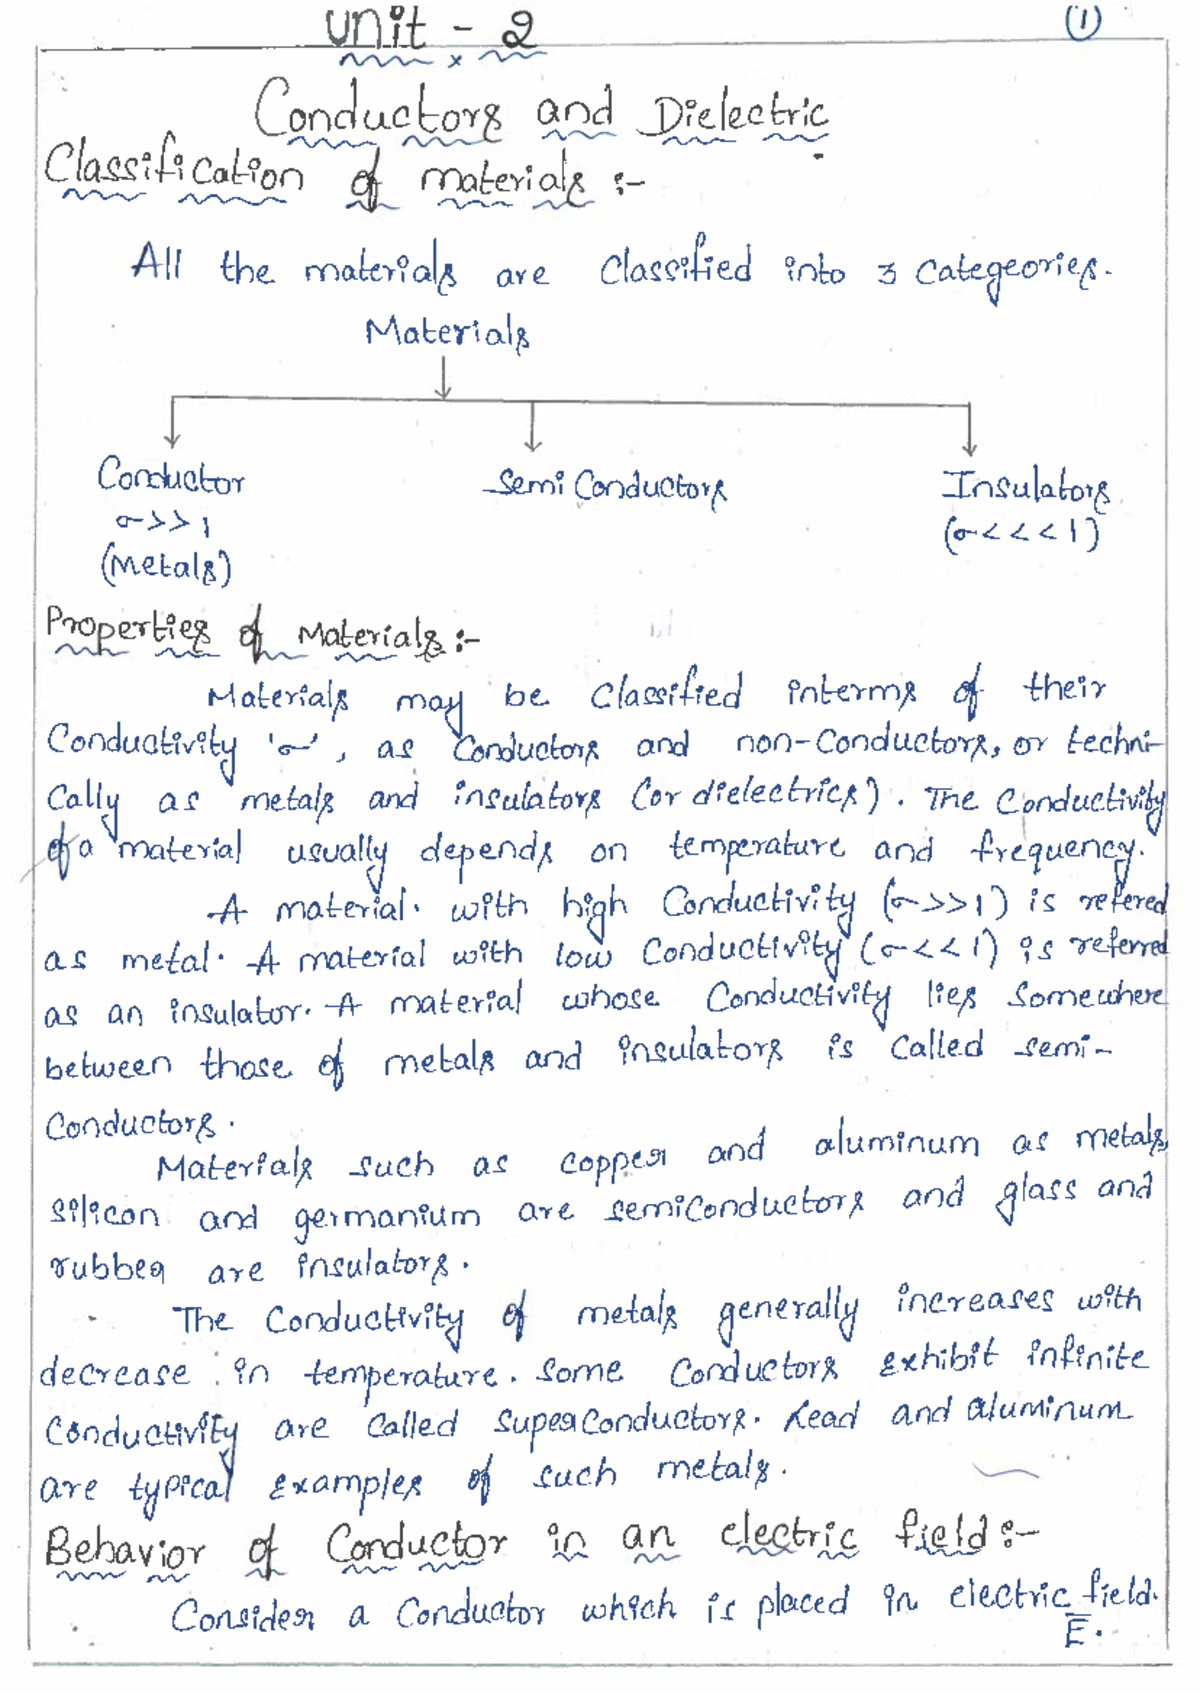 Unit - 2
(1)
Conductors and Dielectric
Classification of materials :-
All the materials are Classified into 3 Categeories.
Materials
Conductor Semi Conductors Insulators
σ>>1 (σ<<<1)
(Metals)
Properties of Materials :-
Materials may be Classified interms of their
Conductivity 'σ', as Conductors and non-Conductors, or techni-
Cally as metals and insulators (or dielectrics). The Conductivity
of a material usually depends on temperature and frequency.
A material. with high Conductivity (σ>>1) is refered
as metal. A material with low Conductivity (σ<<1) is referred
as an insulator. A material whose Conductivity lies Somewhere
between those of metals and insulators is Called semi-
Conductors.
Materials such as copper and aluminum as metals,
Silicon and germanium are semiconductors and glass and
rubber are insulators.
The Conductivity of metals generally increases with
decrease in temperature. Some Conductors exhibit infinite
Conductivity are Called SuperConductors. Lead and aluminum
are typical examples of such metals.
Behavior of Conductor in an electric field :-
Consider a Conductor which is placed in electric field.
E̅.